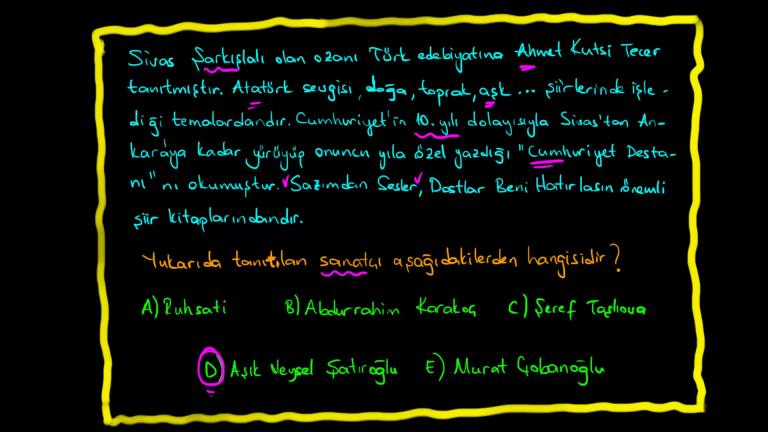 Sivas Şarkışlalı olan ozanı Türk edebiyatına Ahmet Kutsi Tecer
tanıtmıştır. Atatürk sevgisi, doğa, toprak, aşk ... şiirlerinde işle-
diği temalardandır. Cumhuriyet'in 10. yılı dolayısıyla Sivas'tan An-
kara'ya kadar yürüyüp onuncu yıla özel yazdığı "Cumhuriyet Desta-
nı" nı okumuştur. Sazımdan Sesler, Dostlar Beni Hatırlasın önemli
şiir kitaplarındandır.
Yukarıda tanıtılan sanatçı aşağıdakilerden hangisidir?
A) Ruhsati B) Abdurrahim Karakoç C) Şeref Taşlıova
D) Aşık Veysel Şatıroğlu E) Murat Çobanoğlu